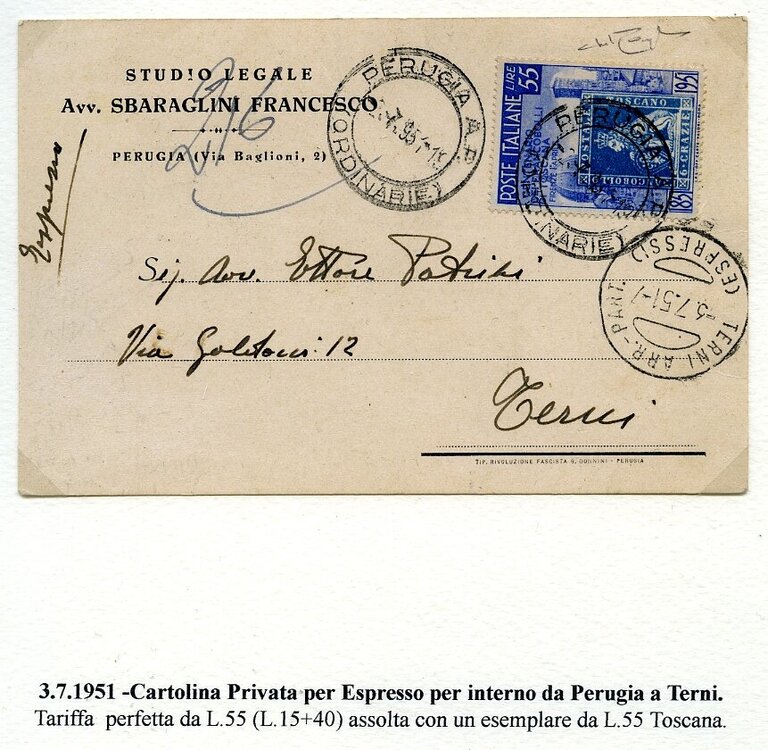 STUDIO LEGALE
Avv. SBARAGLINI FRANCESCO
PERUGIA (Via Baglioni, 2)
216
Espresso
PERUGIA A.P.
(ORDINARIE)
POSTE ITALIANE LIRE 55
1851 1951
TOSCANO
6 CRAZIE
PERUGIA
(ORDINARIE)
TERNI ARR.-PART.
(ESPRESSI)
-3.7.51-7
Sig. Avv. Ettore Patrizi
Via Goletani 12
Terni
TIP. RIVOLUZIONE FASCISTA G. DONNINI - PERUGIA
3.7.1951 -Cartolina Privata per Espresso per interno da Perugia a Terni.
Tariffa perfetta da L.55 (L.15+40) assolta con un esemplare da L.55 Toscana.